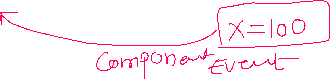 X=100
Component Event